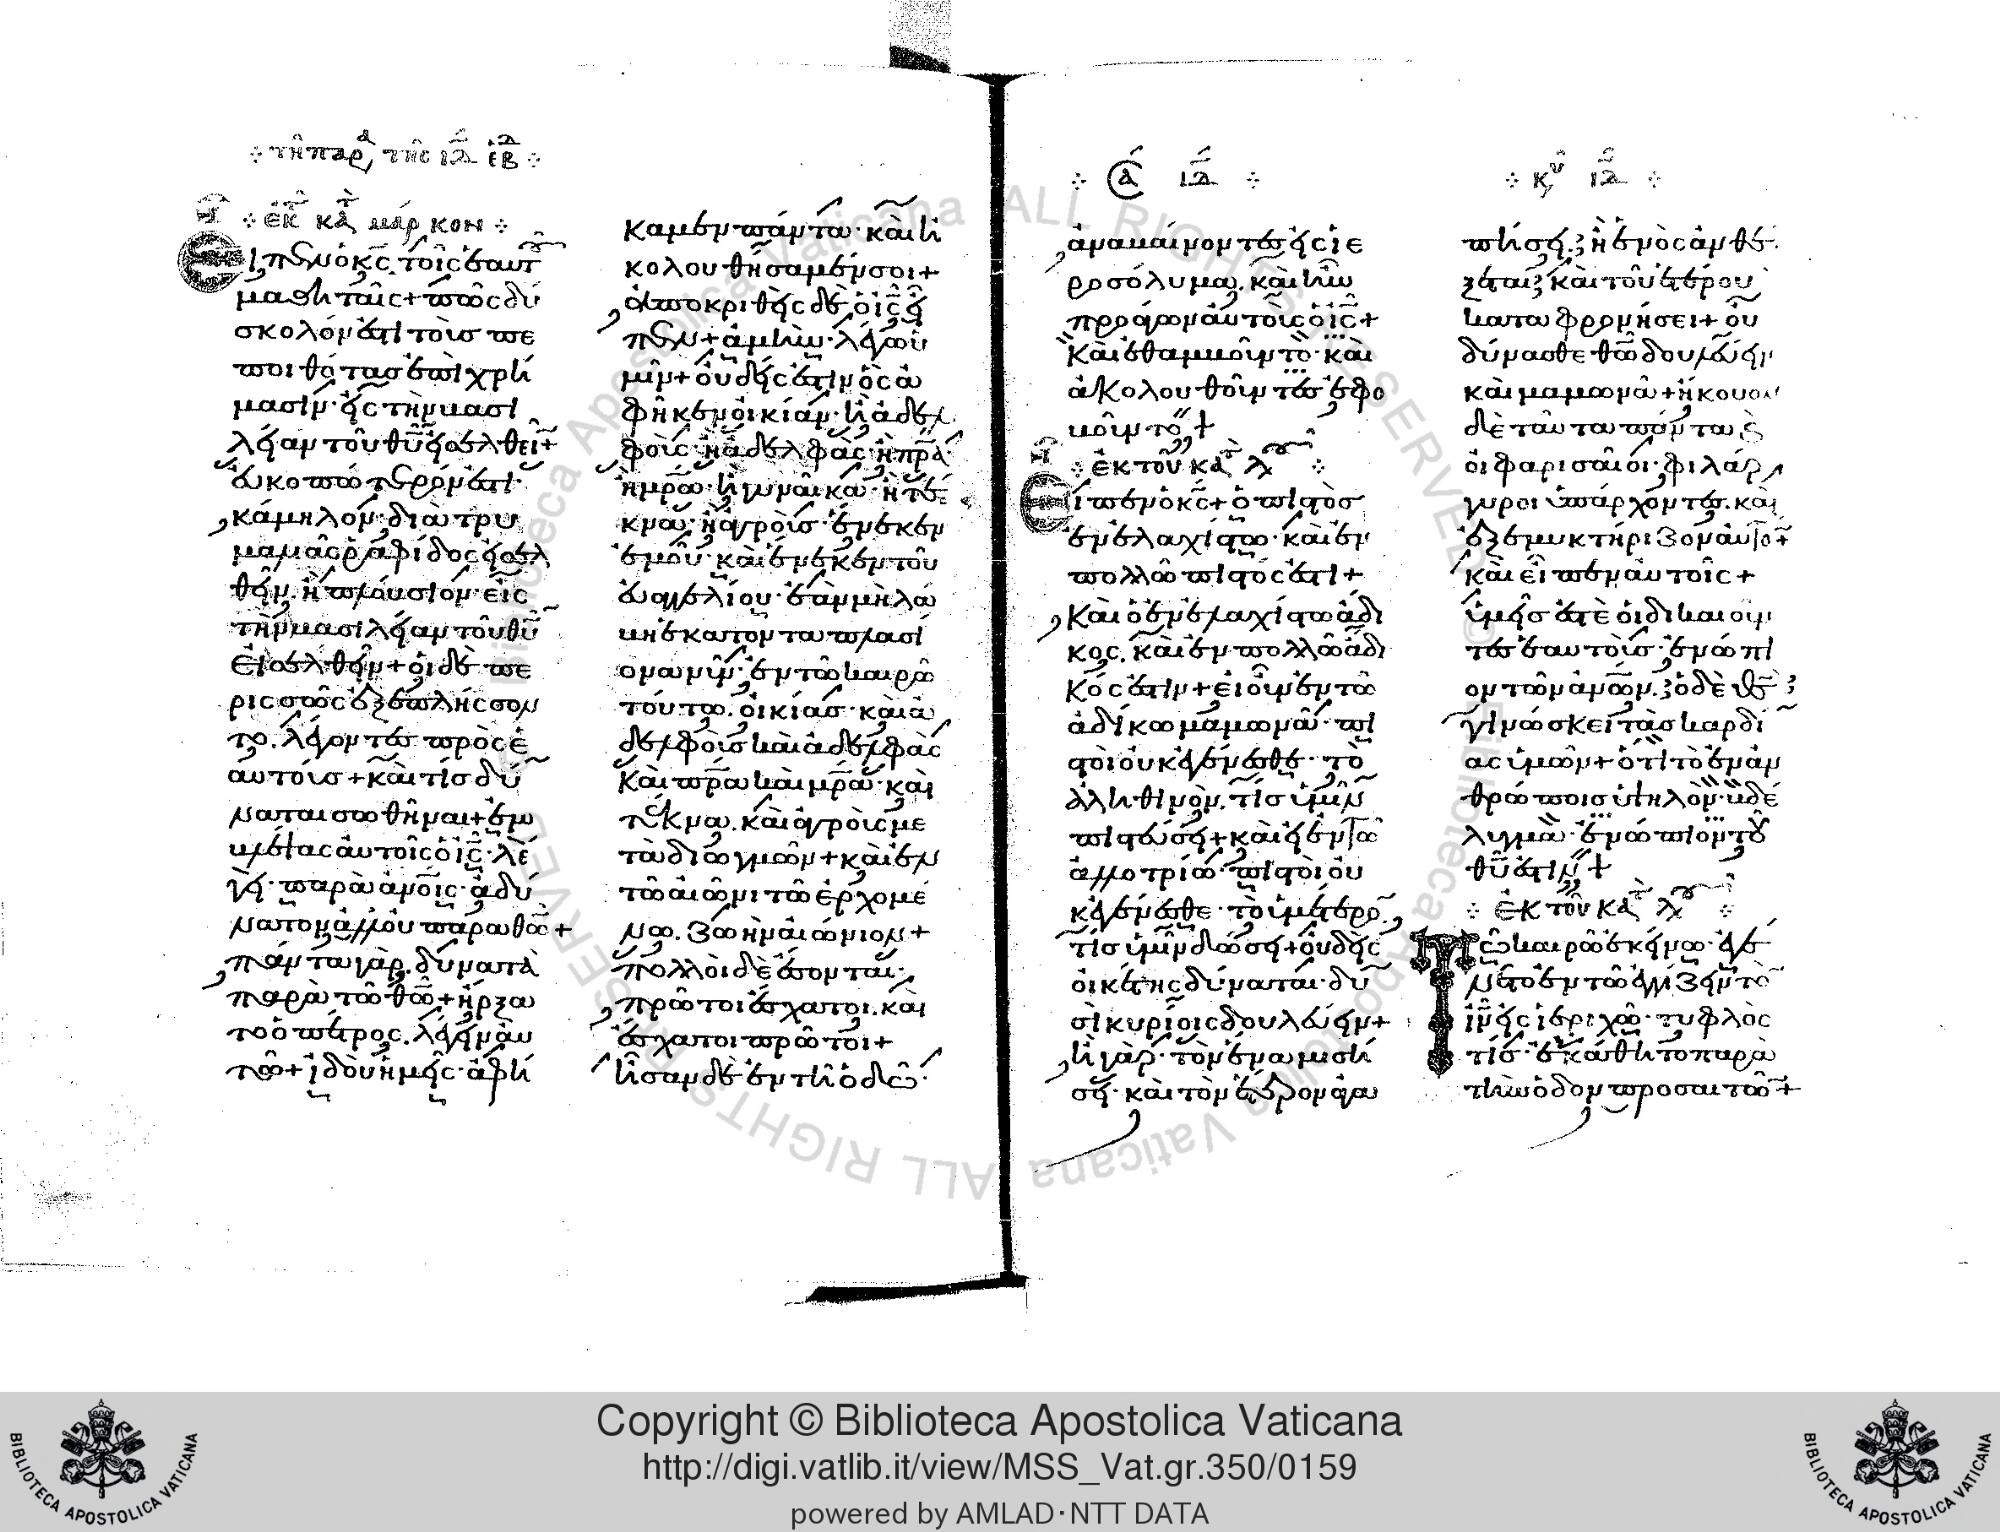 τῆ παρα τῆς ιδ ἑβ
ἐκ τ κατ μάρκον
Εἶπεν ὁ κς τοῖς ἑαυτ
μαθηταῖς + πῶς δύ
σκολόν ἐστι τοὺς πε
ποιθότας ἐπὶ χρή
μασιν· εἰς τὴν βασι
λείαν τοῦ θυ εἰσελθεῖν +
εὐκοπώτερόν ἐστι·
κάμηλον· διὰ τρυ
μαλιᾶς ῥαφίδος εἰσελ
θεῖν. ἢ πλούσιον· εἰς
τὴν βασιλείαν τοῦ θυ
εἰσελθεῖν + οἱ δὲ πε
ρισσῶς ἐξεπλήσσον
το. λέγοντες πρὸς ἑ
αυτούς + καὶ τίς δύ
ναται σωθῆναι + ἐμ
βλέψας αὐτοῖς ὁ ις· λέ
γει· παρὰ ἀνοις· ἀδύ
νατον ἀλλ' οὐ παρὰ θῶ +
πάντα γὰρ. δυνατὰ
παρὰ τῶ θῶ + ἤρξα
το ὁ πέτρος. λέγειν αὐ
τῶ + ἰδοὺ ἡμεῖς· ἀφή
καμεν πάντα· καὶ ἠ
κολουθήσαμέν σοι +
ἀποκριθεὶς δὲ ὁ ις εἶ
πεν + ἀμὴν· λέγω ὑ
μῖν + οὐδείς ἐστιν ὃς ἀ
φῆκεν οἰκίαν· ἢ ἀδελ
φοὺς· ἢ ἀδελφὰς· ἢ πρα·
ἢ μρα· ἢ γυναῖκα· ἢ τέ
κνα· ἢ ἀγροὺς· ἕνεκεν
ἐμοῦ· καὶ ἕνεκεν τοῦ
εὐαγγελίου· ἐὰν μὴ λά
βη ἑκατονταπλασί
ονα νῦν· ἐν τῶ καιρῶ
τούτω. οἰκίας· καὶ ἀ
δελφοὺς καὶ ἀδελφὰς
καὶ πρα καὶ μρα· καὶ
τέκνα. καὶ ἀγροὺς με
τὰ διωγμῶν + καὶ ἐν
τῶ αἰῶνι τῶ ἐρχομέ
νω. ζωὴν αἰώνιον +
πολλοὶ δὲ ἔσονται·
πρῶτοι ἔσχατοι. καὶ
ἔσχατοι πρῶτοι +
ἦσαν δὲ ἐν τῆ ὁδῶ·
ιδ
ἀναβαίνοντες εἰς ἱε
ροσόλυμα. καὶ ἦν
προάγων αὐτοὺς ὁ ις +
καὶ ἐθαμβοῦντο· καὶ
ἀκολουθοῦντες ἐφο
βοῦντο +
ἐκ τοῦ κατ λ
Εἶπεν ὁ κς + ὁ πιστὸς
ἐν ἐλαχίστω· καὶ ἐν
πολλῶ πιστός ἐστι +
Καὶ ὁ ἐν ἐλαχίστω ἄδι
κος. καὶ ἐν πολλῶ ἄδι
κός ἐστιν + εἰ οὖν ἐν τῶ
ἀδίκω μαμωνᾶ· πι
στοὶ οὐκ ἐγένεσθε· τὸ
ἀληθινὸν. τίς ὑμῖν
πιστεύσει + καὶ εἰ ἐν τῶ
ἀλλοτρίω· πιστοὶ οὐ
κ ἐγένεσθε· τὸ ὑμέτερον
τίς ὑμῖν δώσει + οὐδεὶς
οἰκέτης δύναται· δυ
σὶ κυρίοις δουλεύειν +
ἢ γὰρ· τὸν ἕνα μισή
σει· καὶ τὸν ἕτερον ἀγα
κυ ιδ
πήσει· ἢ ἑνὸς ἀνθέ
ξεται καὶ τοῦ ἑτέρου
καταφρονήσει + οὐ
δύνασθε θῶ δουλεύειν
καὶ μαμωνᾶ + ἤκουον
δὲ ταῦτα πάντα καὶ
οἱ φαρισαῖοι· φιλάρ
γυροι ὑπάρχοντες. καὶ
ἐξεμυκτήριζον αὐτόν +
καὶ εἶπεν αὐτοῖς +
ὑμεῖς ἐστὲ οἱ δικαιοῦν
τες ἑαυτοὺς· ἐνώπι
ον τῶν ἀνων. ὁ δὲ θς
γινώσκει τὰς καρδί
ας ὑμῶν + ὅτι τὸ ἐν ἀν
θρώποις ὑψηλὸν· βδέ
λυγμα· ἐνώπιον τοῦ
θυ ἐστιν +
ἐκ τοῦ κατ λ
Τῶ καιρῶ ἐκείνω· ἐγέ
νετο ἐν τῶ ἐγγίζειν τὸν
ιν εἰς ἱεριχῶ· τυφλός
τίς· ἐκάθητο παρὰ
τὴν ὁδὸν προσαιτῶν +
Copyright © Biblioteca Apostolica Vaticana
http://digi.vatlib.it/view/MSS_Vat.gr.350/0159
powered by AMLAD·NTT DATA
BIBLIOTECA APOSTOLICA VATICANA
BIBLIOTECA APOSTOLICA VATICANA